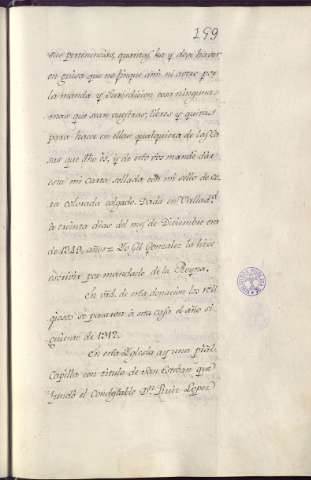 199
sus pertenencias, quantas ha y deve haver
en guisa que no finque ami ni otros por
la manda y Jurisdicion cosa ninguna
mas que sean vuestras, libres y quitas
para hacer en ellas qualquiera de las co
sas que dho es, y de esto vos mande dar
esta mi carta sellada con mi sello de ce
ra colorada colgado. Dada en Vallad.d
a treinta dias del mes de Diciembre era
de 1349 años = Yo Gil Gonzalez la hice
escribir por mandado de la Reyna.
En vrd. de esta donacion los reli
giosos se pasaron à esta casa el año si
guiente de 1312.
En esta Yglesia ay una pral
Capilla con titulo de San Esteban que
fundó el Condestable Dn. Ruiz Lopez